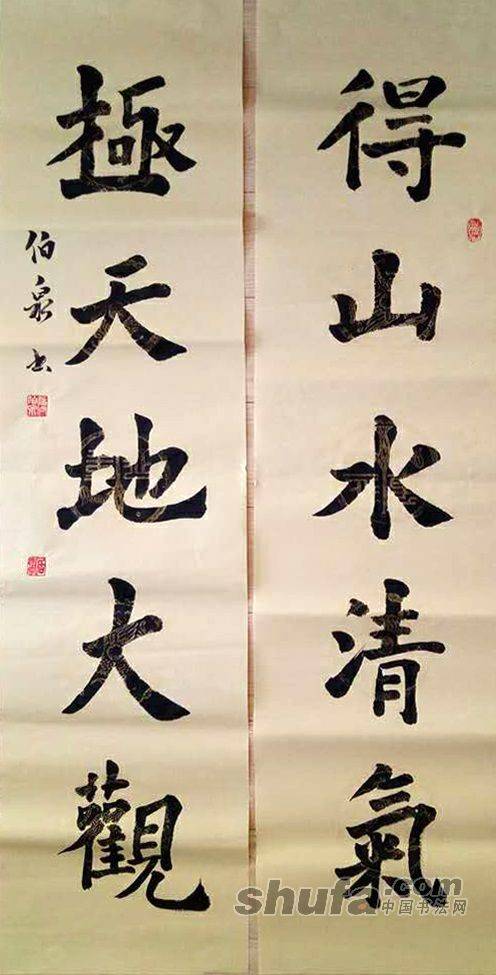 得山水清氣
極天地大觀
伯泉书
shufa.com
中国书法网